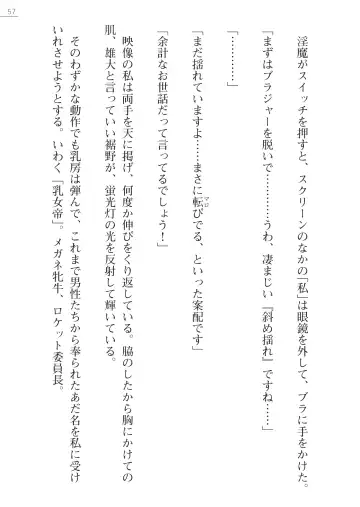 57
淫魔がスイッチを押すと、スクリーンのなかの「私」は眼鏡を外して、ブラに手をかけた。
「まずはブラジャーを脱いで…………うわ、凄まじい『斜め揺れ』ですね……」
「…………」
「まだ揺れていますよ……まさに転びでる、といった案配です」
マロ
「余計なお世話だって言ってるでしょう！」
映像の私は両手を天に掲げ、何度か伸びをくり返している。脇のしたから胸にかけての
肌、雄大と言っていい裾野が、蛍光灯の光を反射して輝いている。
そのわずかな動作でも乳房は弾んで、これまで男性たちから奉られたあだ名を私に受け
いれさせようとする。いわく「乳女帝」。メガネ牝牛、ロケット委員長。